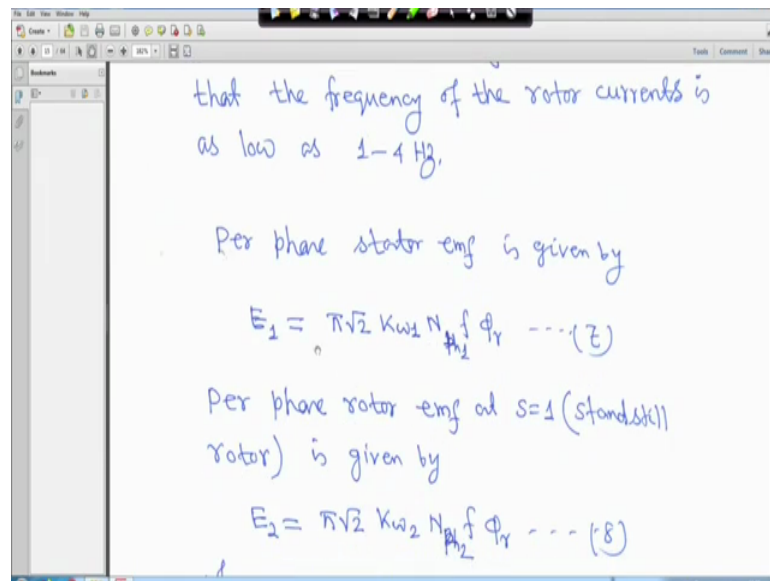 File Edit View Window Help
Create
15 / 44
182%
Tools Comment
Bookmarks
that the frequency of the rotor currents is
as low as 1-4 Hz.
Per phase stator emf is given by
E₁ = π√2 Kw₁ Nph₁ f φr ----(7)
Per phase rotor emf at s=1 (standstill
rotor) is given by
E₂ = π√2 Kw₂ Nph₂ f φr ----(8)